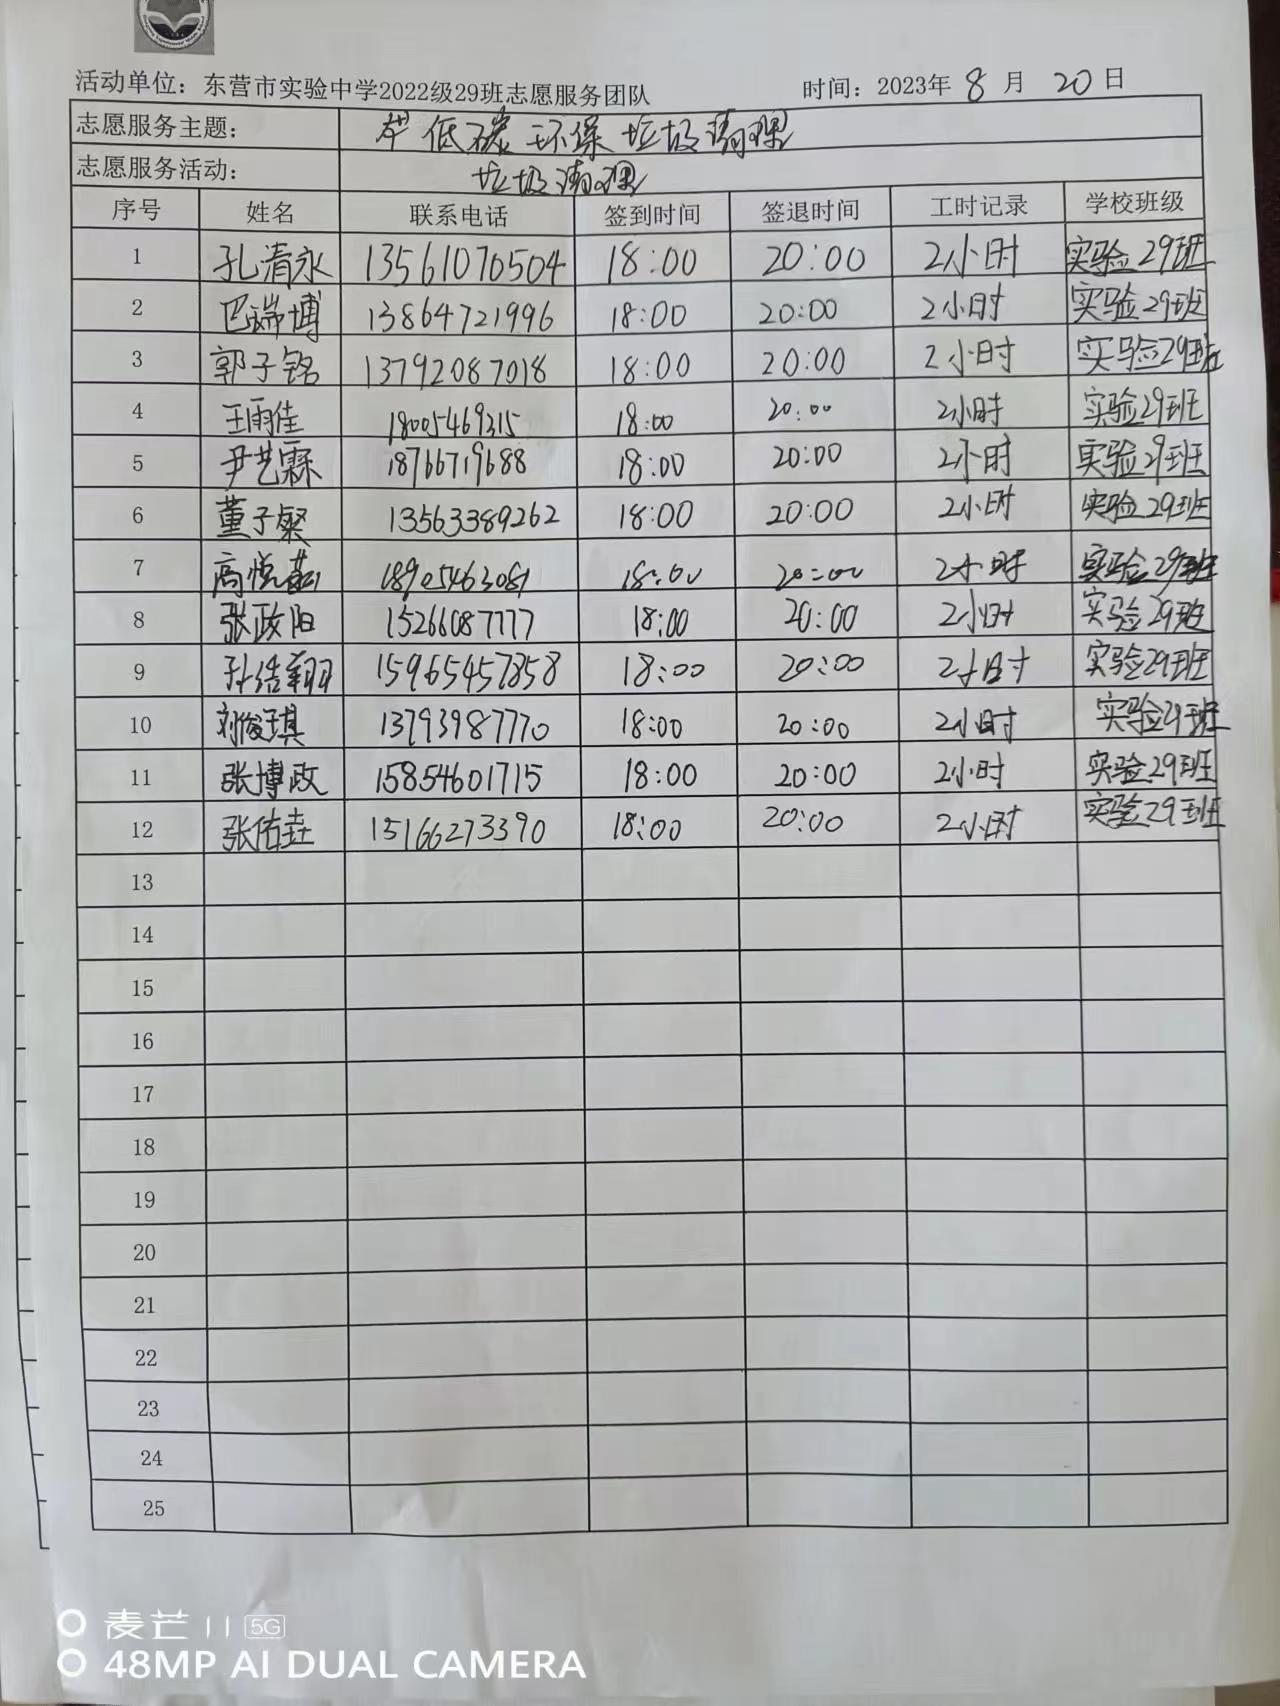 活动单位：东营市实验中学2022级29班志愿服务团队 时间：2023年 8 月 20 日
志愿服务主题： 低碳环保垃圾清理
志愿服务活动： 垃圾清理
序号 姓名 联系电话 签到时间 签退时间 工时记录 学校班级
1 孔清永 13561070504 18:00 20:00 2小时 实验29班
2 巴瑞博 13864721996 18:00 20:00 2小时 实验29班
3 郭子铭 13792087018 18:00 20:00 2小时 实验29班
4 王雨佳 18005469315 18:00 20:00 2小时 实验29班
5 尹艺霖 18766719688 18:00 20:00 2小时 实验29班
6 董子粲 13563389262 18:00 20:00 2小时 实验29班
7 高悦 18905463081 18:00 20:00 2小时 实验29班
8 张政阳 15266087777 18:00 20:00 2小时 实验29班
9 孙浩翔 15965457858 18:00 20:00 2小时 实验29班
10 刘俊琪 13793987770 18:00 20:00 2小时 实验29班
11 张博政 15854601715 18:00 20:00 2小时 实验29班
12 张佑垚 15166273390 18:00 20:00 2小时 实验29班
13
14
15
16
17
18
19
20
21
22
23
24
25
麦芒11 5G
48MP AI DUAL CAMERA